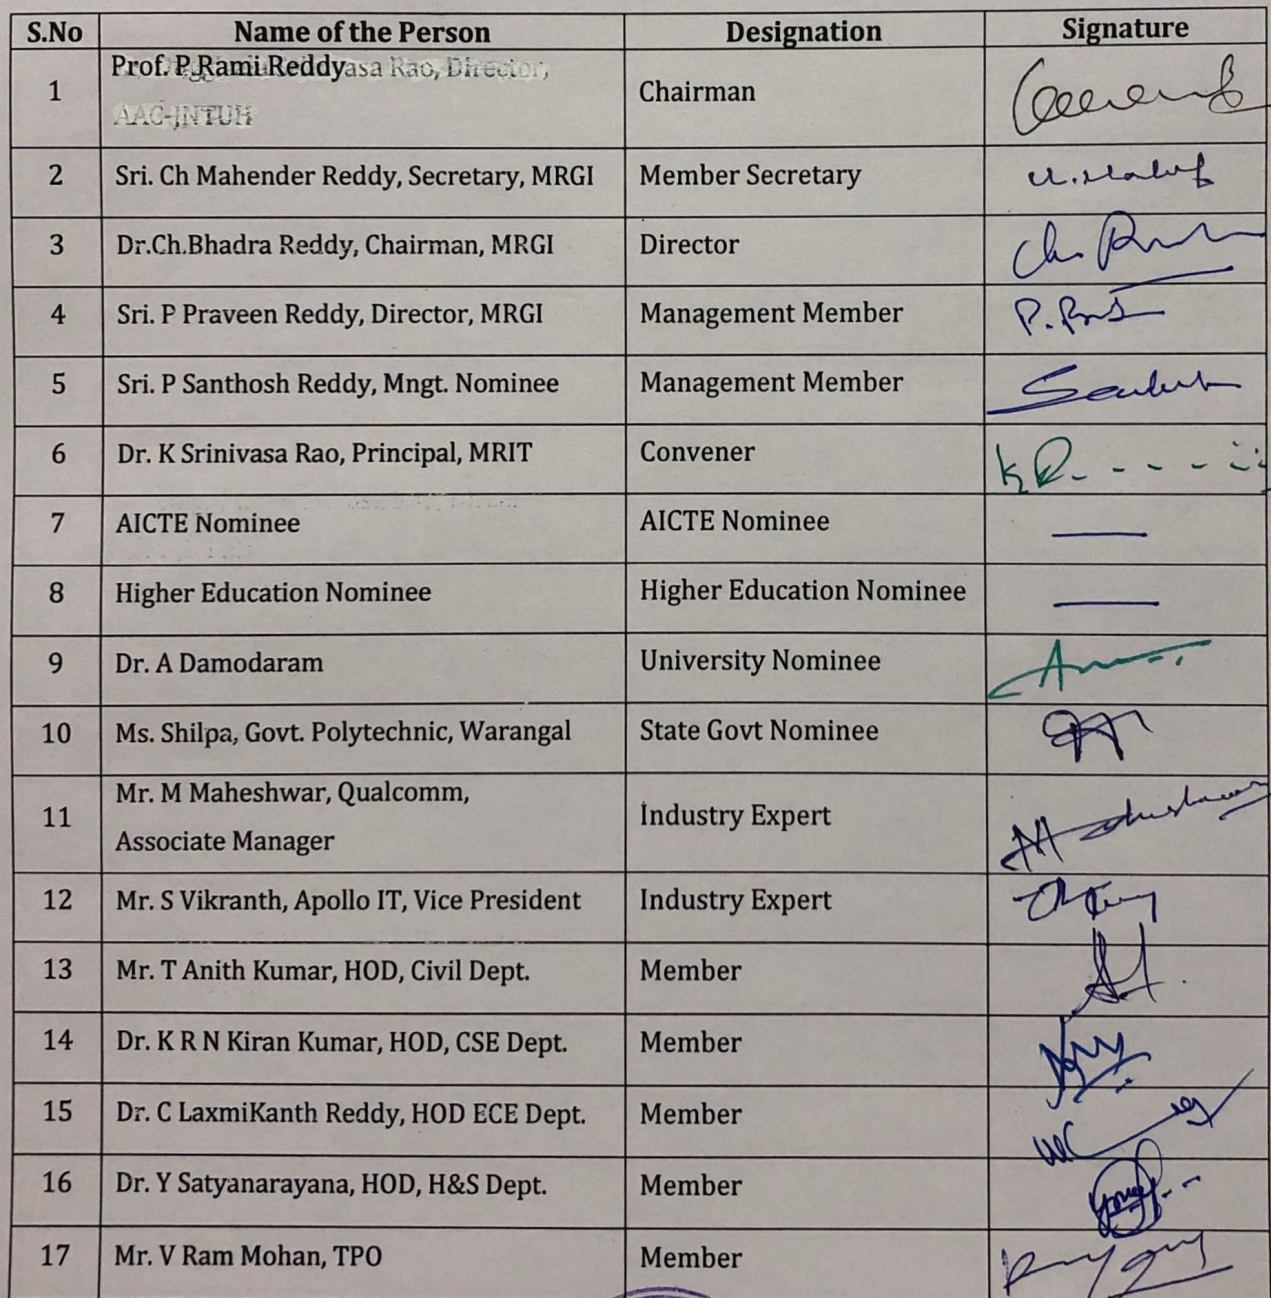 S.No Name of the Person Designation Signature
1 Prof. P Rami Reddyasa Rao, Director, Chairman
AAC-JNTUH
2 Sri. Ch Mahender Reddy, Secretary, MRGI Member Secretary
3 Dr.Ch.Bhadra Reddy, Chairman, MRGI Director
4 Sri. P Praveen Reddy, Director, MRGI Management Member
5 Sri. P Santhosh Reddy, Mngt. Nominee Management Member
6 Dr. K Srinivasa Rao, Principal, MRIT Convener
7 AICTE Nominee AICTE Nominee
8 Higher Education Nominee Higher Education Nominee
9 Dr. A Damodaram University Nominee
10 Ms. Shilpa, Govt. Polytechnic, Warangal State Govt Nominee
11 Mr. M Maheshwar, Qualcomm, Industry Expert
Associate Manager
12 Mr. S Vikranth, Apollo IT, Vice President Industry Expert
13 Mr. T Anith Kumar, HOD, Civil Dept. Member
14 Dr. K R N Kiran Kumar, HOD, CSE Dept. Member
15 Dr. C LaxmiKanth Reddy, HOD ECE Dept. Member
16 Dr. Y Satyanarayana, HOD, H&S Dept. Member
17 Mr. V Ram Mohan, TPO Member